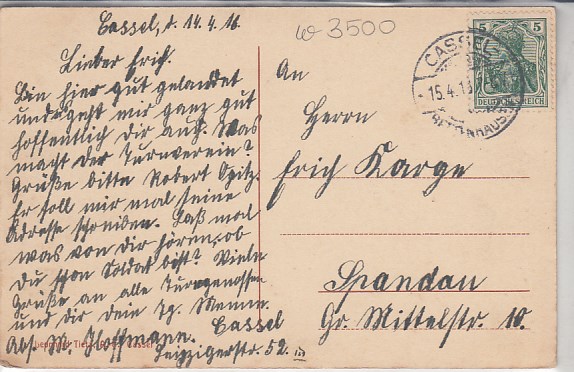 Cassel, d. 14.4.16
Lieber Erich.
Bin hier gut gelandet
und geht mir ganz gut
hoffentlich Dir auch. Was
macht der Turnverein?
Grüße bitte Robert Opitz.
Er soll mir mal seine
Adresse schreiben. Laß mal
was von Dir hören, ob
Du schon Soldat bist? Viele
Grüße an alle Turngenossen
und Dir Dein Tg. Memm.
Abs. M. Hoffmann. Cassel
Leipzigerstr. 52. III
w 3500
An
Herrn
Erich Karge
Spandau
Gr. Mittelstr. 10.
5 5
DEUTSCHES REICH
CASSEL
15.4.16